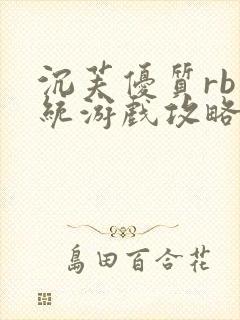 沉芙優質rb
統游戲攻略
島田百合花